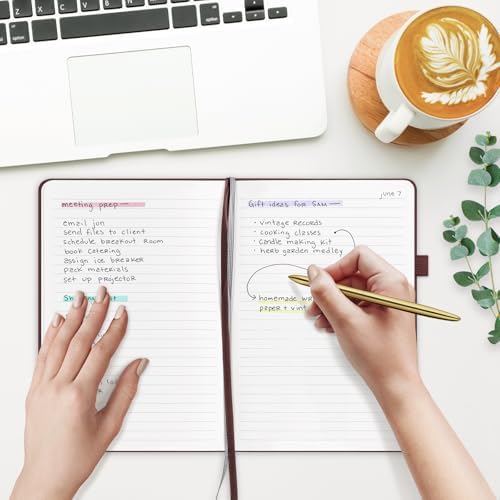 meeting prep
email jon
send files to client
schedule breakout room
book catering
assign ice breaker
pack materials
set up projector
june 7
Gift ideas for SAM
• vintage records
• cooking classes
• candle making kit
• herb garden medley
homemade
paper + vint